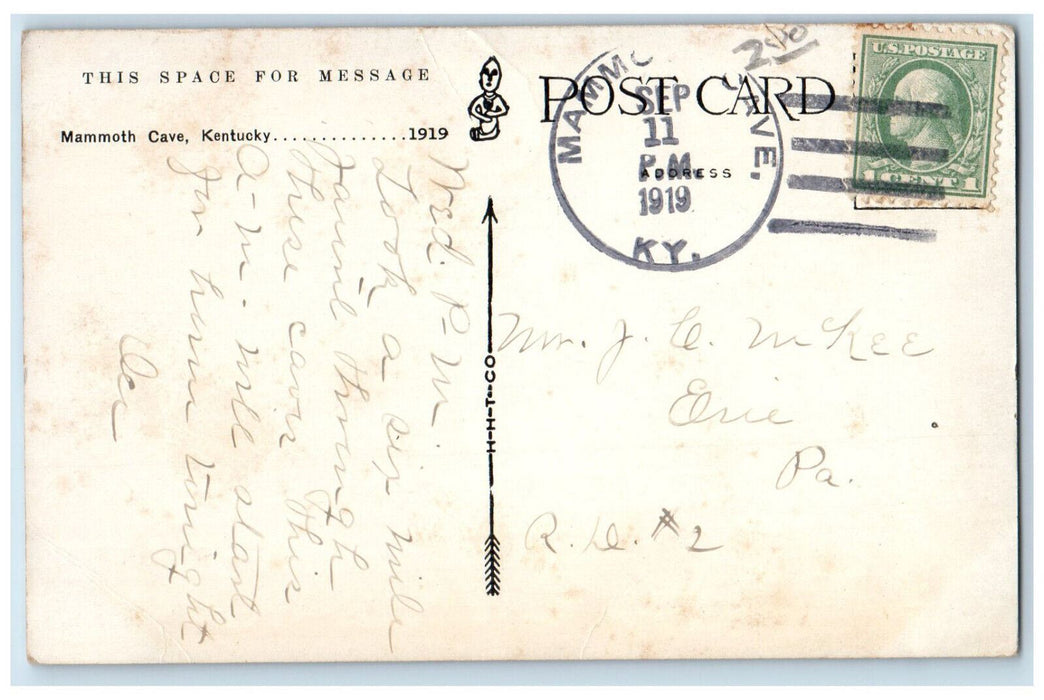 THIS SPACE FOR MESSAGE
Mammoth Cave, Kentucky..............1919
Wed. P. M.
Took a six mile
jaunt through
these caves this
a-m. will start
for home tonight
POST CARD
ADDRESS
MAMMO CAVE,
SEP
11
P.M
1919
KY.
250
U.S. POSTAGE
1 CENT 1
H-H-T-CO
Mr. J. C. McKee
Erie
Pa.
R. D. #2